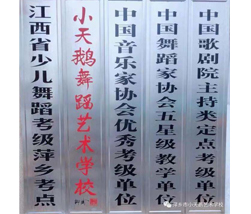 江西省少儿舞蹈考级萍乡考点
小天鹅舞蹈艺术学校
中国音乐家协会优秀考级单位
中国舞蹈家协会五星级教学单位
中国歌剧院主持类定点考级单位